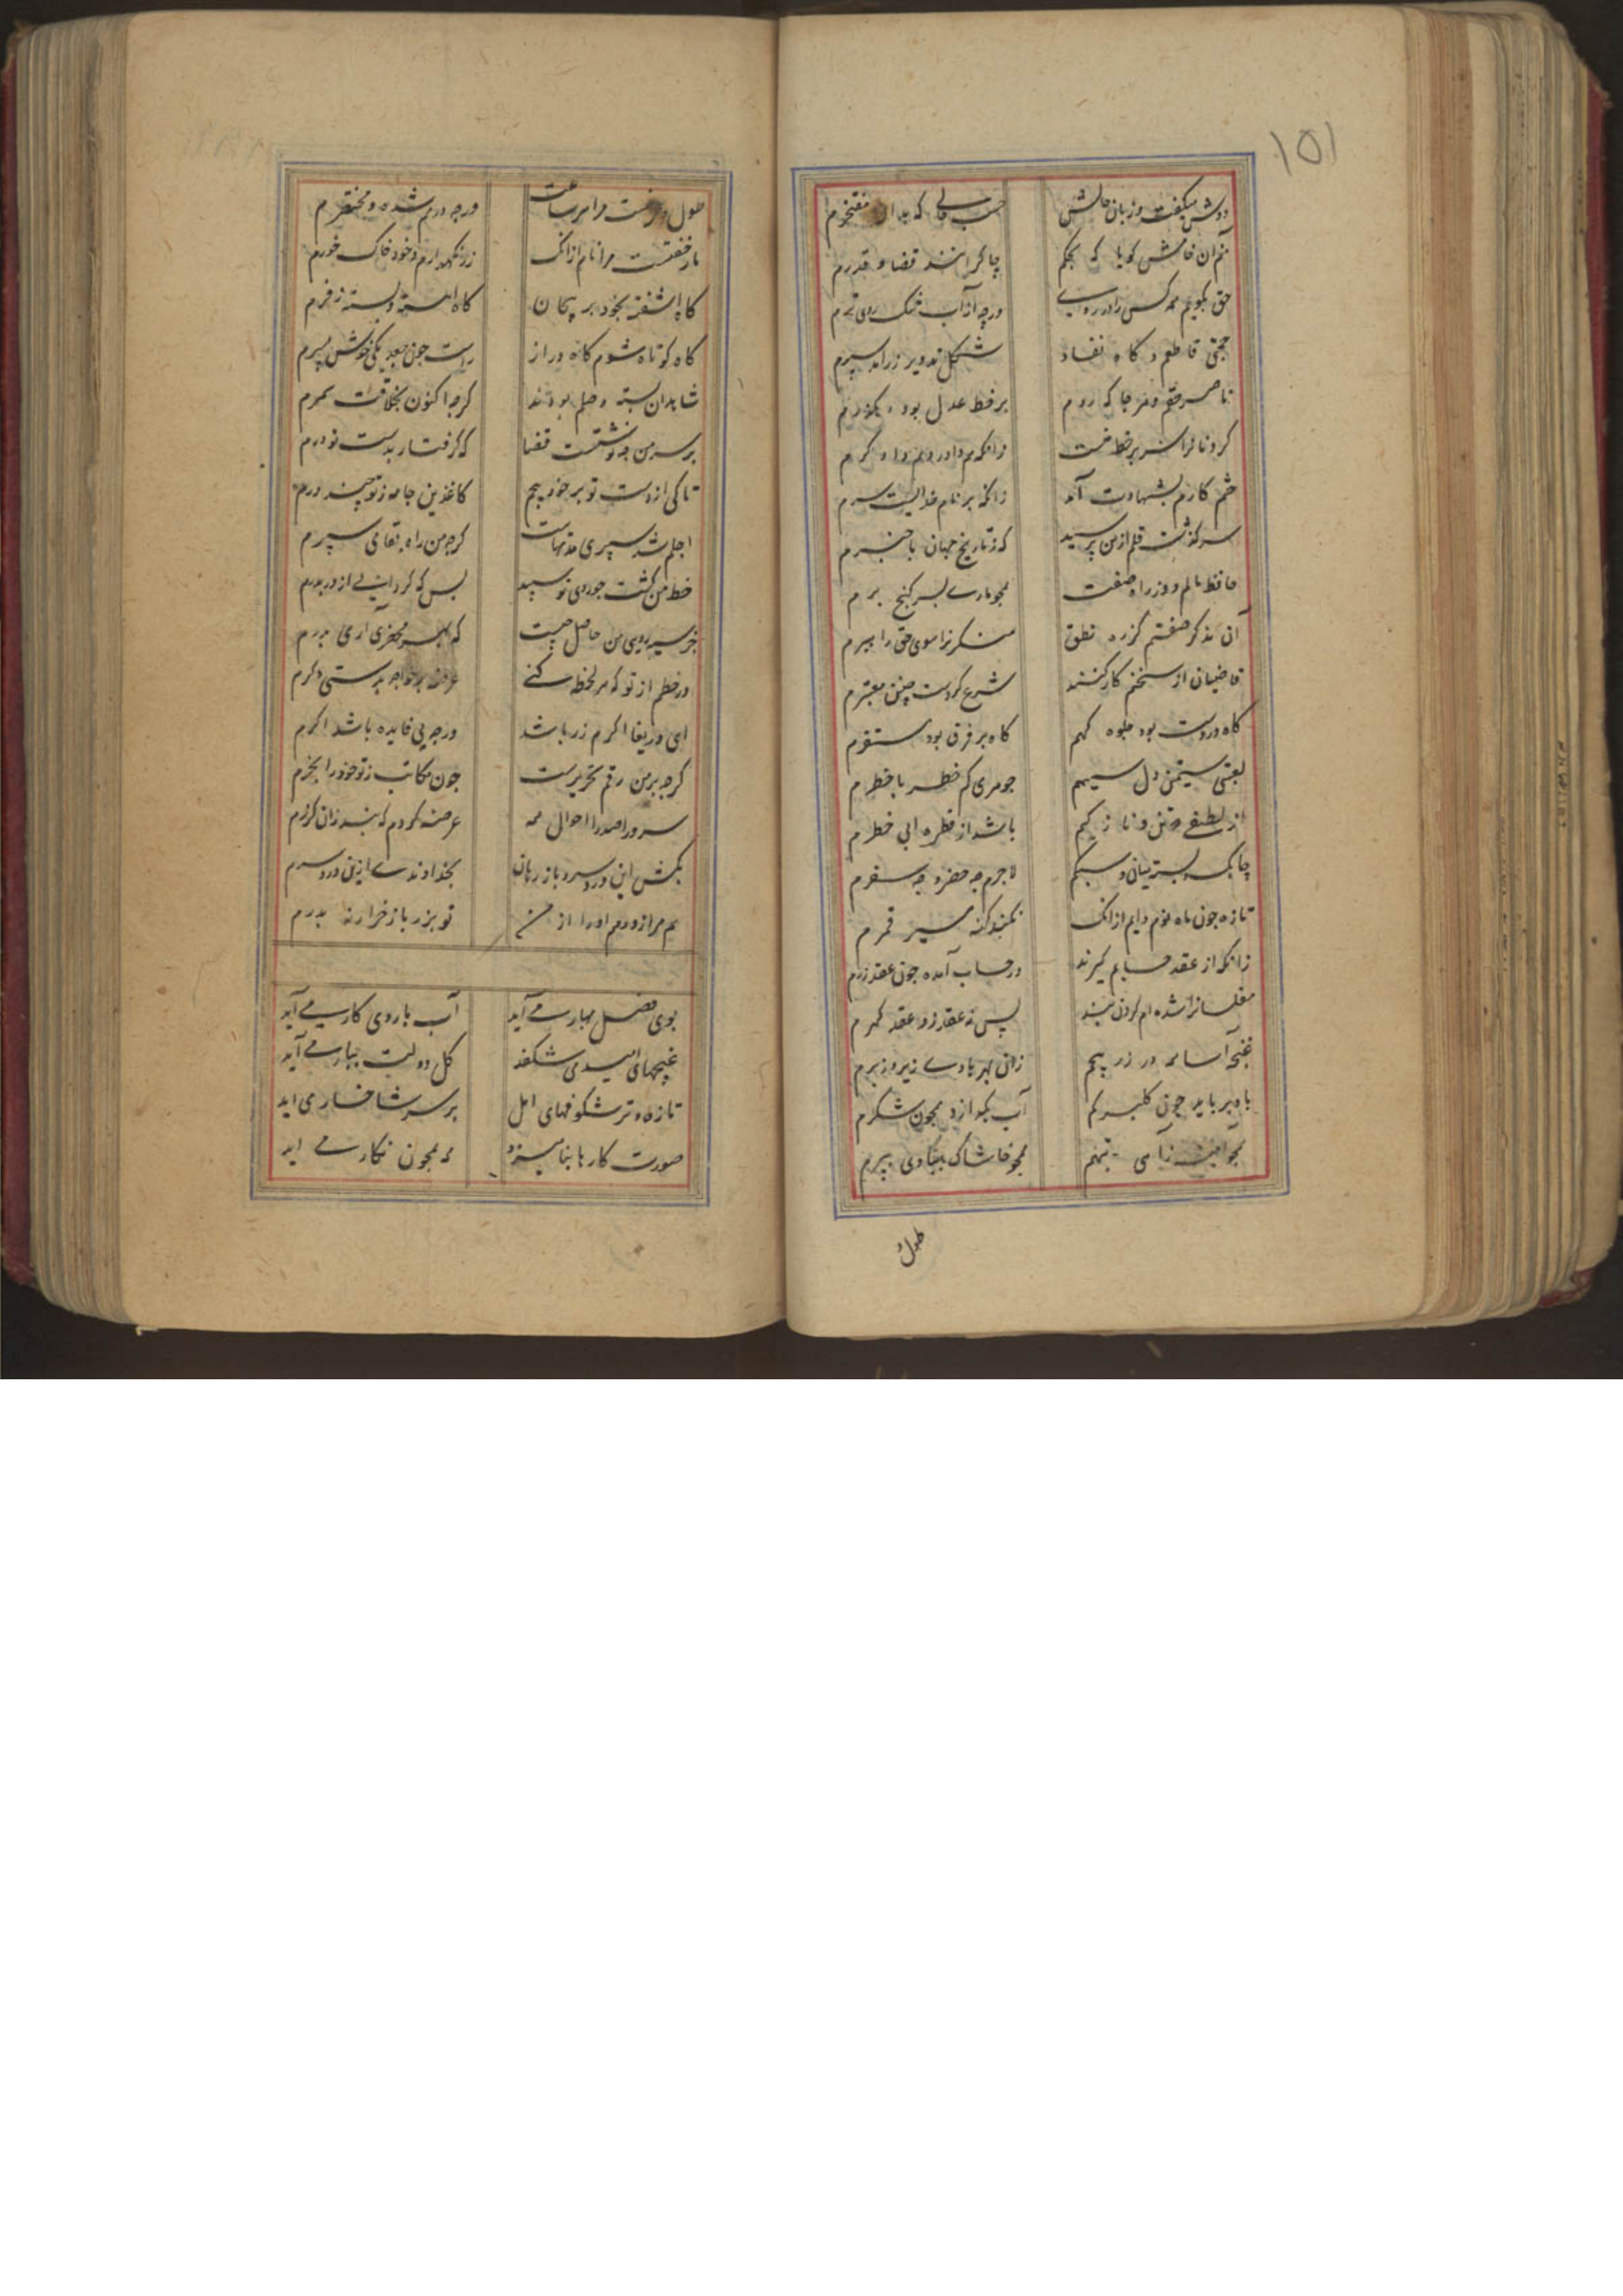 ١٥١
دوش میکفت در زبان حالش
حسب حالی که بدان مفتخرم
منم ان خامش کویا که بحکم
چاکرانند قضا و قدرم
حق بکویم همه کس را در روی
ورچه از آب خشک روی ترم
حجتی قاطعم و کاه نفاد
شکل تدویر زراند سپرم
ناصر حقم و هر جا که روم
بر خط عدل بود رهکذرم
زانکه هم داور و هم داد کرم
ختم کارم بشهادت آمد
زانکه بر نام خدایست سرم
سرکذشت قلم از من پرسید
که ز تاریخ جهان با خبرم
حافظ مالم و وزرا صفت
همچو ماری بسر کنج برم
آن مذکر صفتم کز ره نطق
منکرانرا سوی حق راهبرم
قاضیان از سخنم کار کنند
شرع کردست چنین معتبرم
کاه در دست بود جلوه کهم
کاه بر فرق بود مستقرم
لعبتی سیمتن و دل سیهم
جوهری کم خطر با خطرم
از لطیفی ختن و نازکیم
باشد از قطره ابی خطرم
چابک و بسته میان و سبکم
لاجرم چه حضر و چه سفرم
تازه چون ماه نوم دایم ازانک
نکند کنه سیر قمرم
زانکه از عقد حسابم کیرند
در حساب آمده چون عقد زرم
مفلسانرا شده ام کردن بند
پس نه عقد زر و عقد کهرم
غنچه آسا همه در زر پیچم
زانی بهر بادی زیر و زبرم
باد بر باید چون کلبرکم
آب بکدازد همچون شکرم
همچو خاشاک ببادی بپرم
طول
طول و عرضست مرا هر ساعت
ورچه در هم شده و مختصرم
مار خفتست مرا نام ازانک
زر نکهدارم و خود خاک خورم
کاه اشفته بخود بر پیچان
کاه اهسته و بسته زفرم
کاه کوتاه شوم کاه دراز
راست چون جعد یکی خوش پسرم
شاهدان بسته وصلم بودند
کرچه اکنون بخلاقت سمرم
بر سر من چه نوشتست قضا
که کرفتار بدست تو درم
تا کی از دست تو بر خود پیچم
کاغذین جامه ز تو چند درم
اجلم شد سپری مدتهاست
کرچه من راه بقا می سپرم
خط من کشت چو روی تو سپید
بس که کردانی از در بدرم
جز سیه رویی من حاصل چیست
در خطم از تو که هر لحظه کنی
عرضه بر خواجه بدستی دکرم
ای دریغا اکرم زر باشد
ورچه بی فایده باشد اکرم
کرچه بر من رقم تحریرست
چون مکاتب ز تو خود را بخرم
سرورا صدرا احوال همه
عرضه کردم که بند زان کزرم
بکش این درد سر و باز رهان
بخداوندی ازین درد سرم
هم مرا زو و هم او را از من
تو بزر باز خر ارنه بدرم
بوی فصل بهار می آید
آب با روی کار می آید
غنچهای امید می شکفد
کل دولت ببار می آید
تازه و تر شکوفهای امل
بر سر شاخسار می اید
صورت کارها بنامیزد
همه همچون نکار می اید